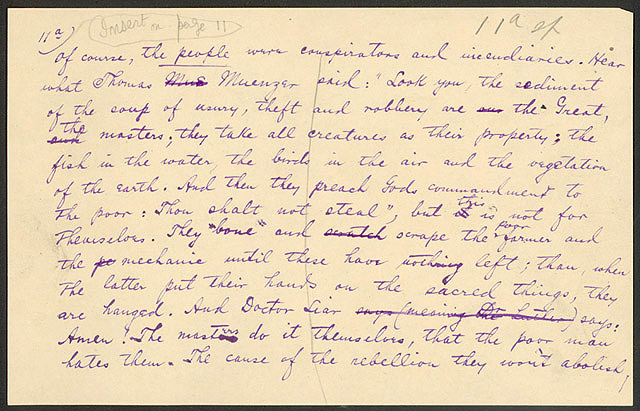 11a) Insert on page 11 11a of
Of course, the people were conspirators and incendiaries. Hear
what Thomas Mus Muenzer said: "Look you, the sediment
of the soup of usury, theft and robbery, are our the Great,
the masters; they take all creatures as their property; the
fish in the water, the birds in the air and the vegetation
of the earth. And then they preach Gods commandment to
the poor: Thou shalt not steal", but this is not for
themselves. They "bone" and scratch scrape the poor farmer and
the mechanic until these have nothing left; than, when
the latter put their hands on the sacred things, they
are hanged. And Doctor Liar says (meaning Dr Luther) says:
Amen! The masters do it themselves, that the poor man
hates them. The cause of the rebellion they won't abolish,